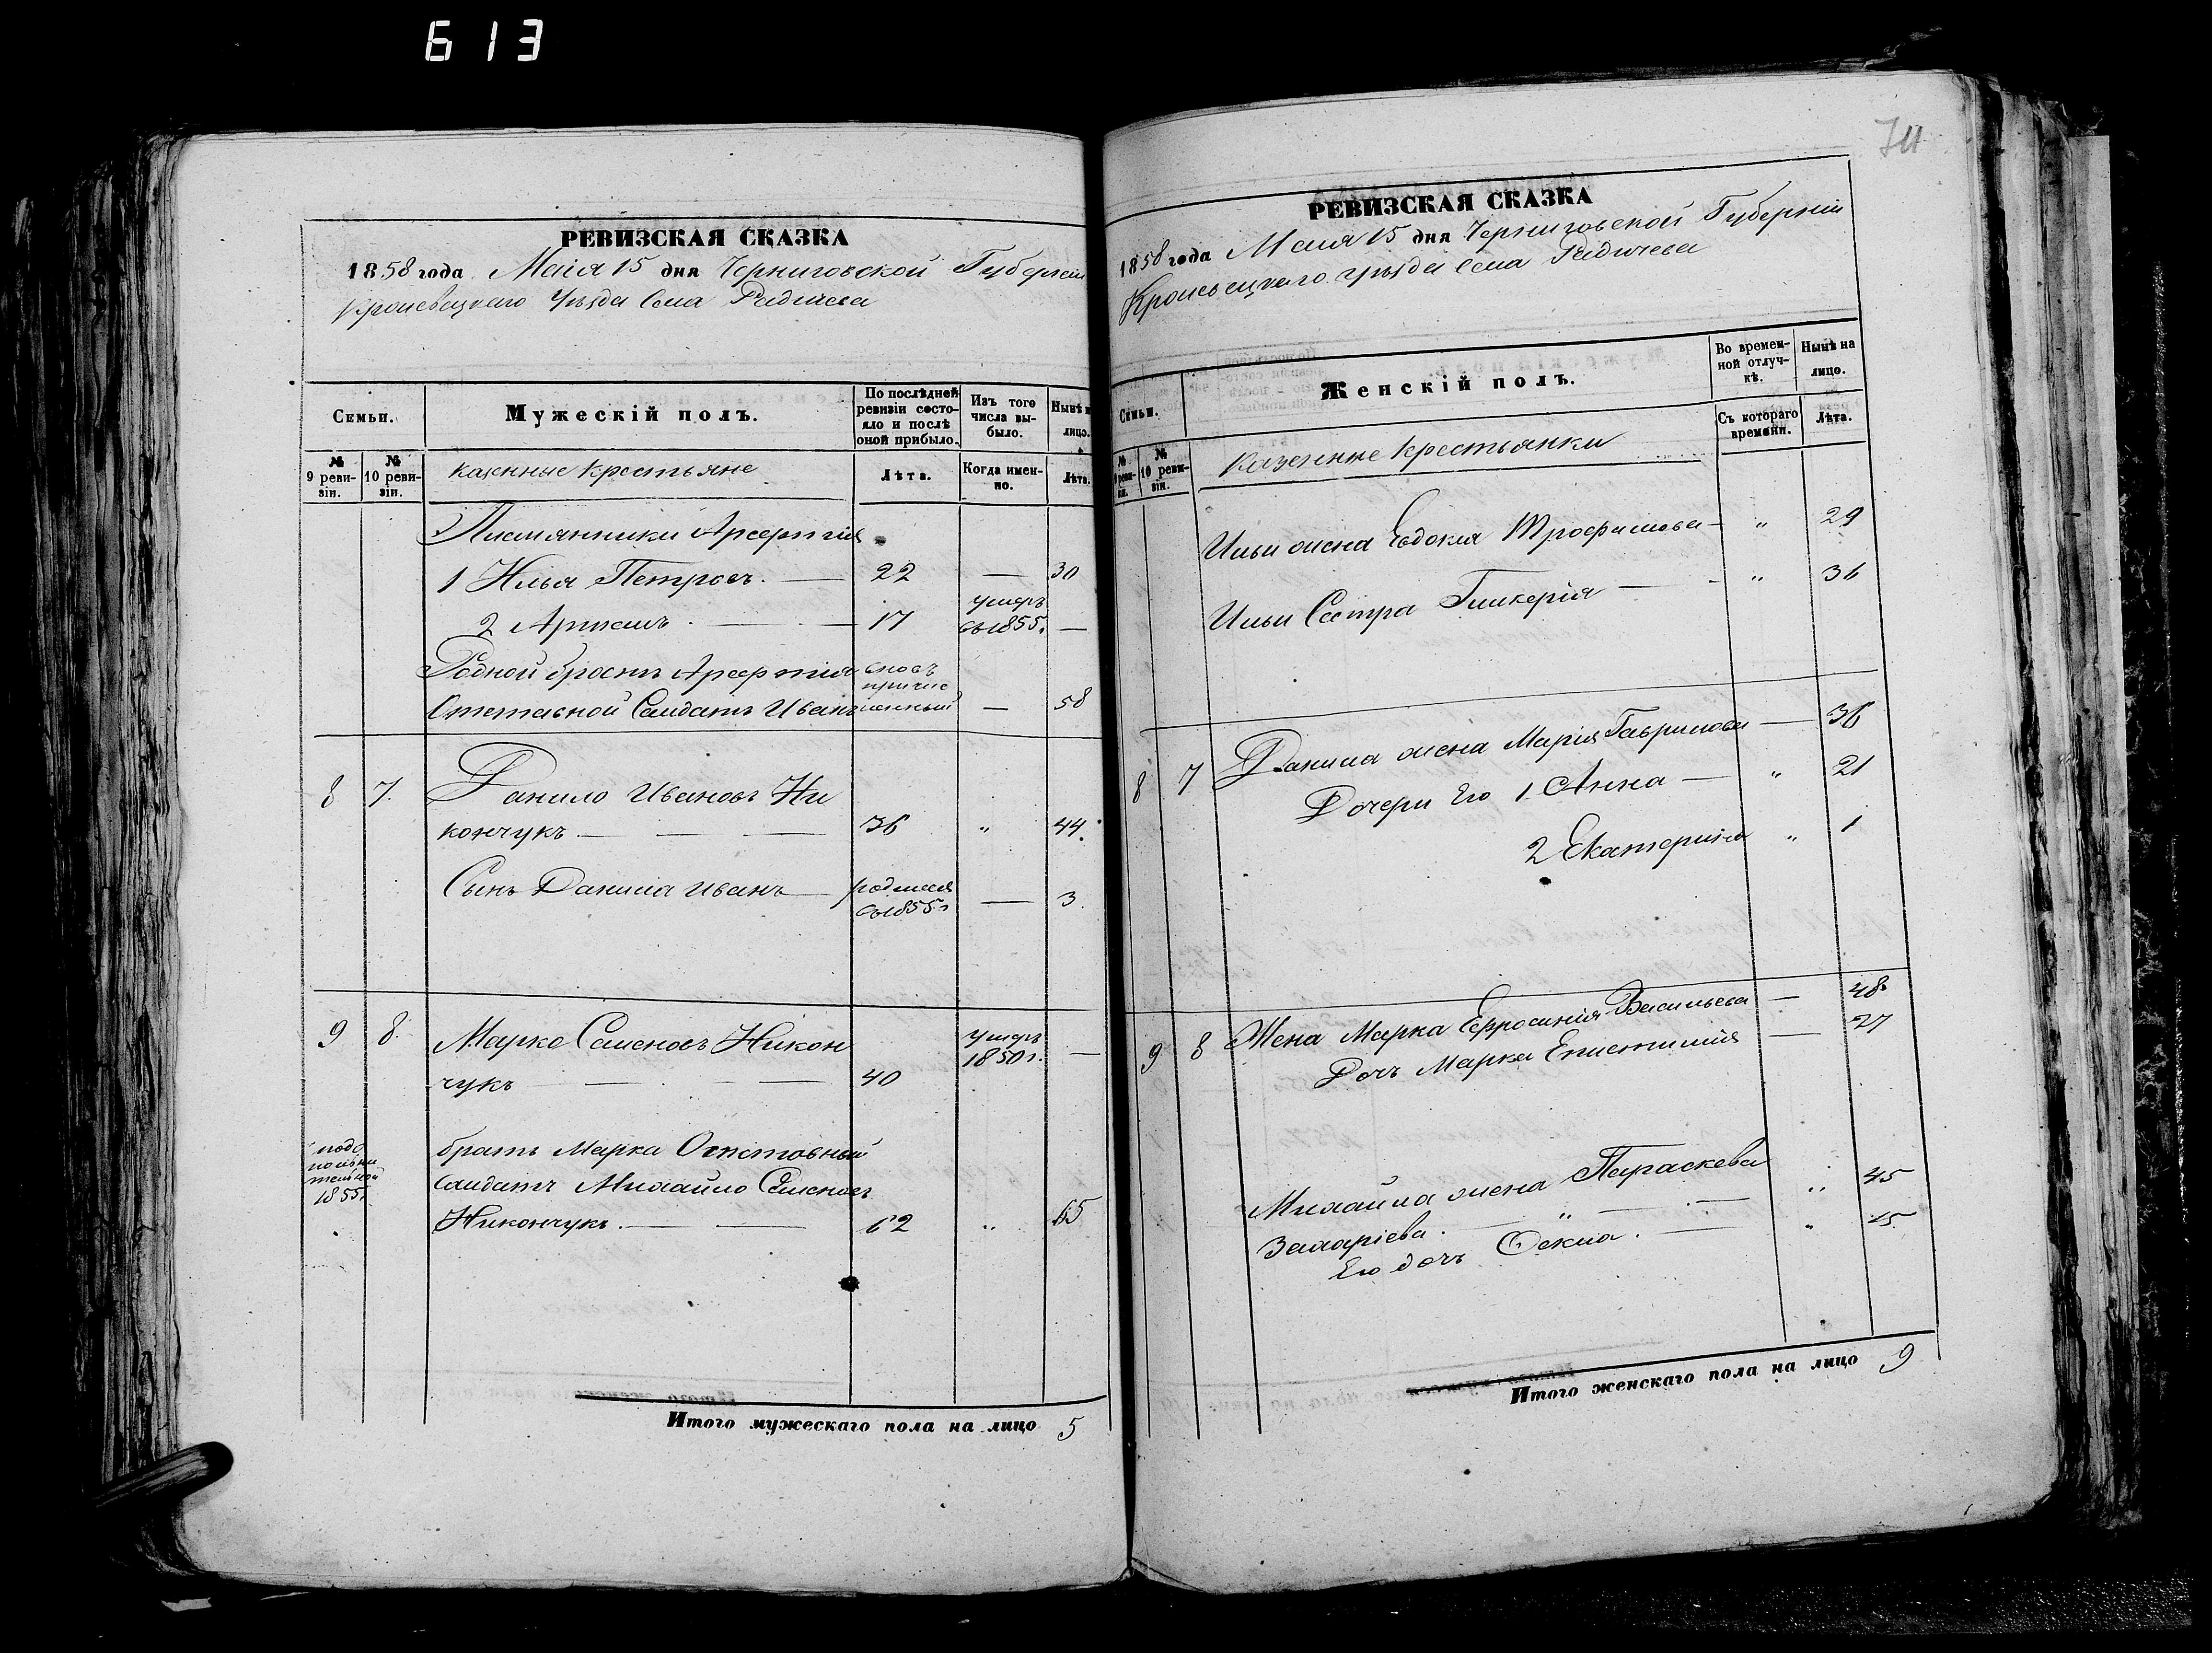 613
РЕВИЗСКАЯ СКАЗКА
1858 года Маія 15 дня Черниговской Губерніи
Кролевецкаго Уѣзда Села Радичева
Семьи.
Мужескій полъ.
По послѣдней ревизіи состояло и послѣ оной прибыло.
Изъ того числа выбыло.
Нынѣ на лицо.
№ 9 ревизіи.
№ 10 ревизіи.
казенные крестьяне
Лѣта.
Когда именно.
Лѣта.
Племянники Арсентія
1 Илья Петровъ. — 22 — 30
2 Артемъ. — — 17 умеръ въ 1855. —
Родной братъ Арсентія вновь
причис
Отставной Салдатъ Иванъ ленный — 58
8 7. Данило Ивановъ Ни
кончукъ — — — 36 " 44.
Сынъ Данила Иванъ — родился въ 1855 г — 3.
9 8. Марко Семеновъ Никон умеръ 1850 г. —
чукъ — — 40
по до
полни
тельной
1855 г.
братъ Марка Отставный
Салдатъ Михайло Семеновъ
Никончукъ. — — 62 " 65
Итого мужескаго пола на лицо 5
РЕВИЗСКАЯ СКАЗКА
1858 года Маія 15 дня Черниговской Губерніи
Кролевецкаго уѣзда Села Радичева
Семьи.
Женскій полъ.
Во временной отлучкѣ.
Нынѣ на лицо.
№ 9 ревизіи.
№ 10 ревизіи.
Казенные крестьянки
Съ котораго времени.
Лѣта.
Ильи жена Евдокія Трофимова — " 29
Ильи Сестра Гликерія — - " 36
8 7 Данила жена Марія Гаврилова — 36
Дочери Его 1 Анна — " 21
2 Екатерина " 1
9 8 Жена Марка Ефросинія Васильева — 48
Дочь Марка Епистимія — 27
Михайла жена Параскева
Захаріева. — " — " 45
Его дочь Фекла. — " 15
Итого женскаго пола на лицо 9